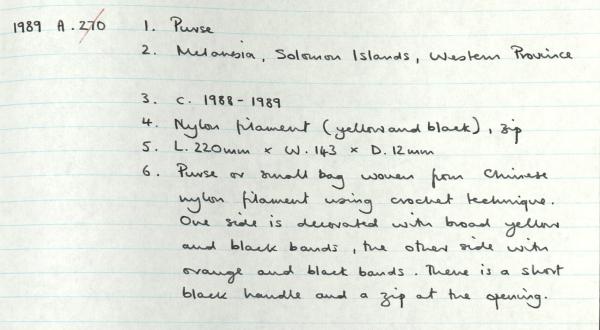 1989 A.270 1. Purse
2. Melanesia, Solomon Islands, Western Province
3. c. 1988-1989
4. Nylon filament (yellow and black), zip
5. L. 220mm × W. 143 × D. 12mm
6. Purse or small bag woven from Chinese
nylon filament using crochet technique.
One side is decorated with broad yellow
and black bands, the other side with
orange and black bands. There is a short
black handle and a zip at the opening.